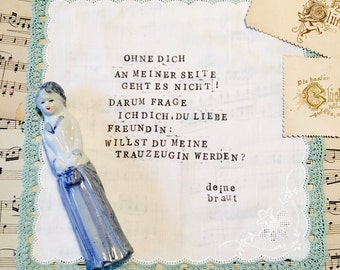 OHNE DICH
AN MEINER SEITE
GEHT ES NICHT!
DARUM FRAGE
ICH DICH, DU LIEBE
FREUNDIN:
WILLST DU MEINE
TRAUZEUGIN WERDEN?
deine
braut